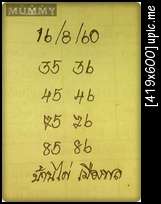 MUMMY
16/8/60
35 36
45 46
75 76
85 86
บ้านไผ่ เมืองพล
[419x600]upic.me